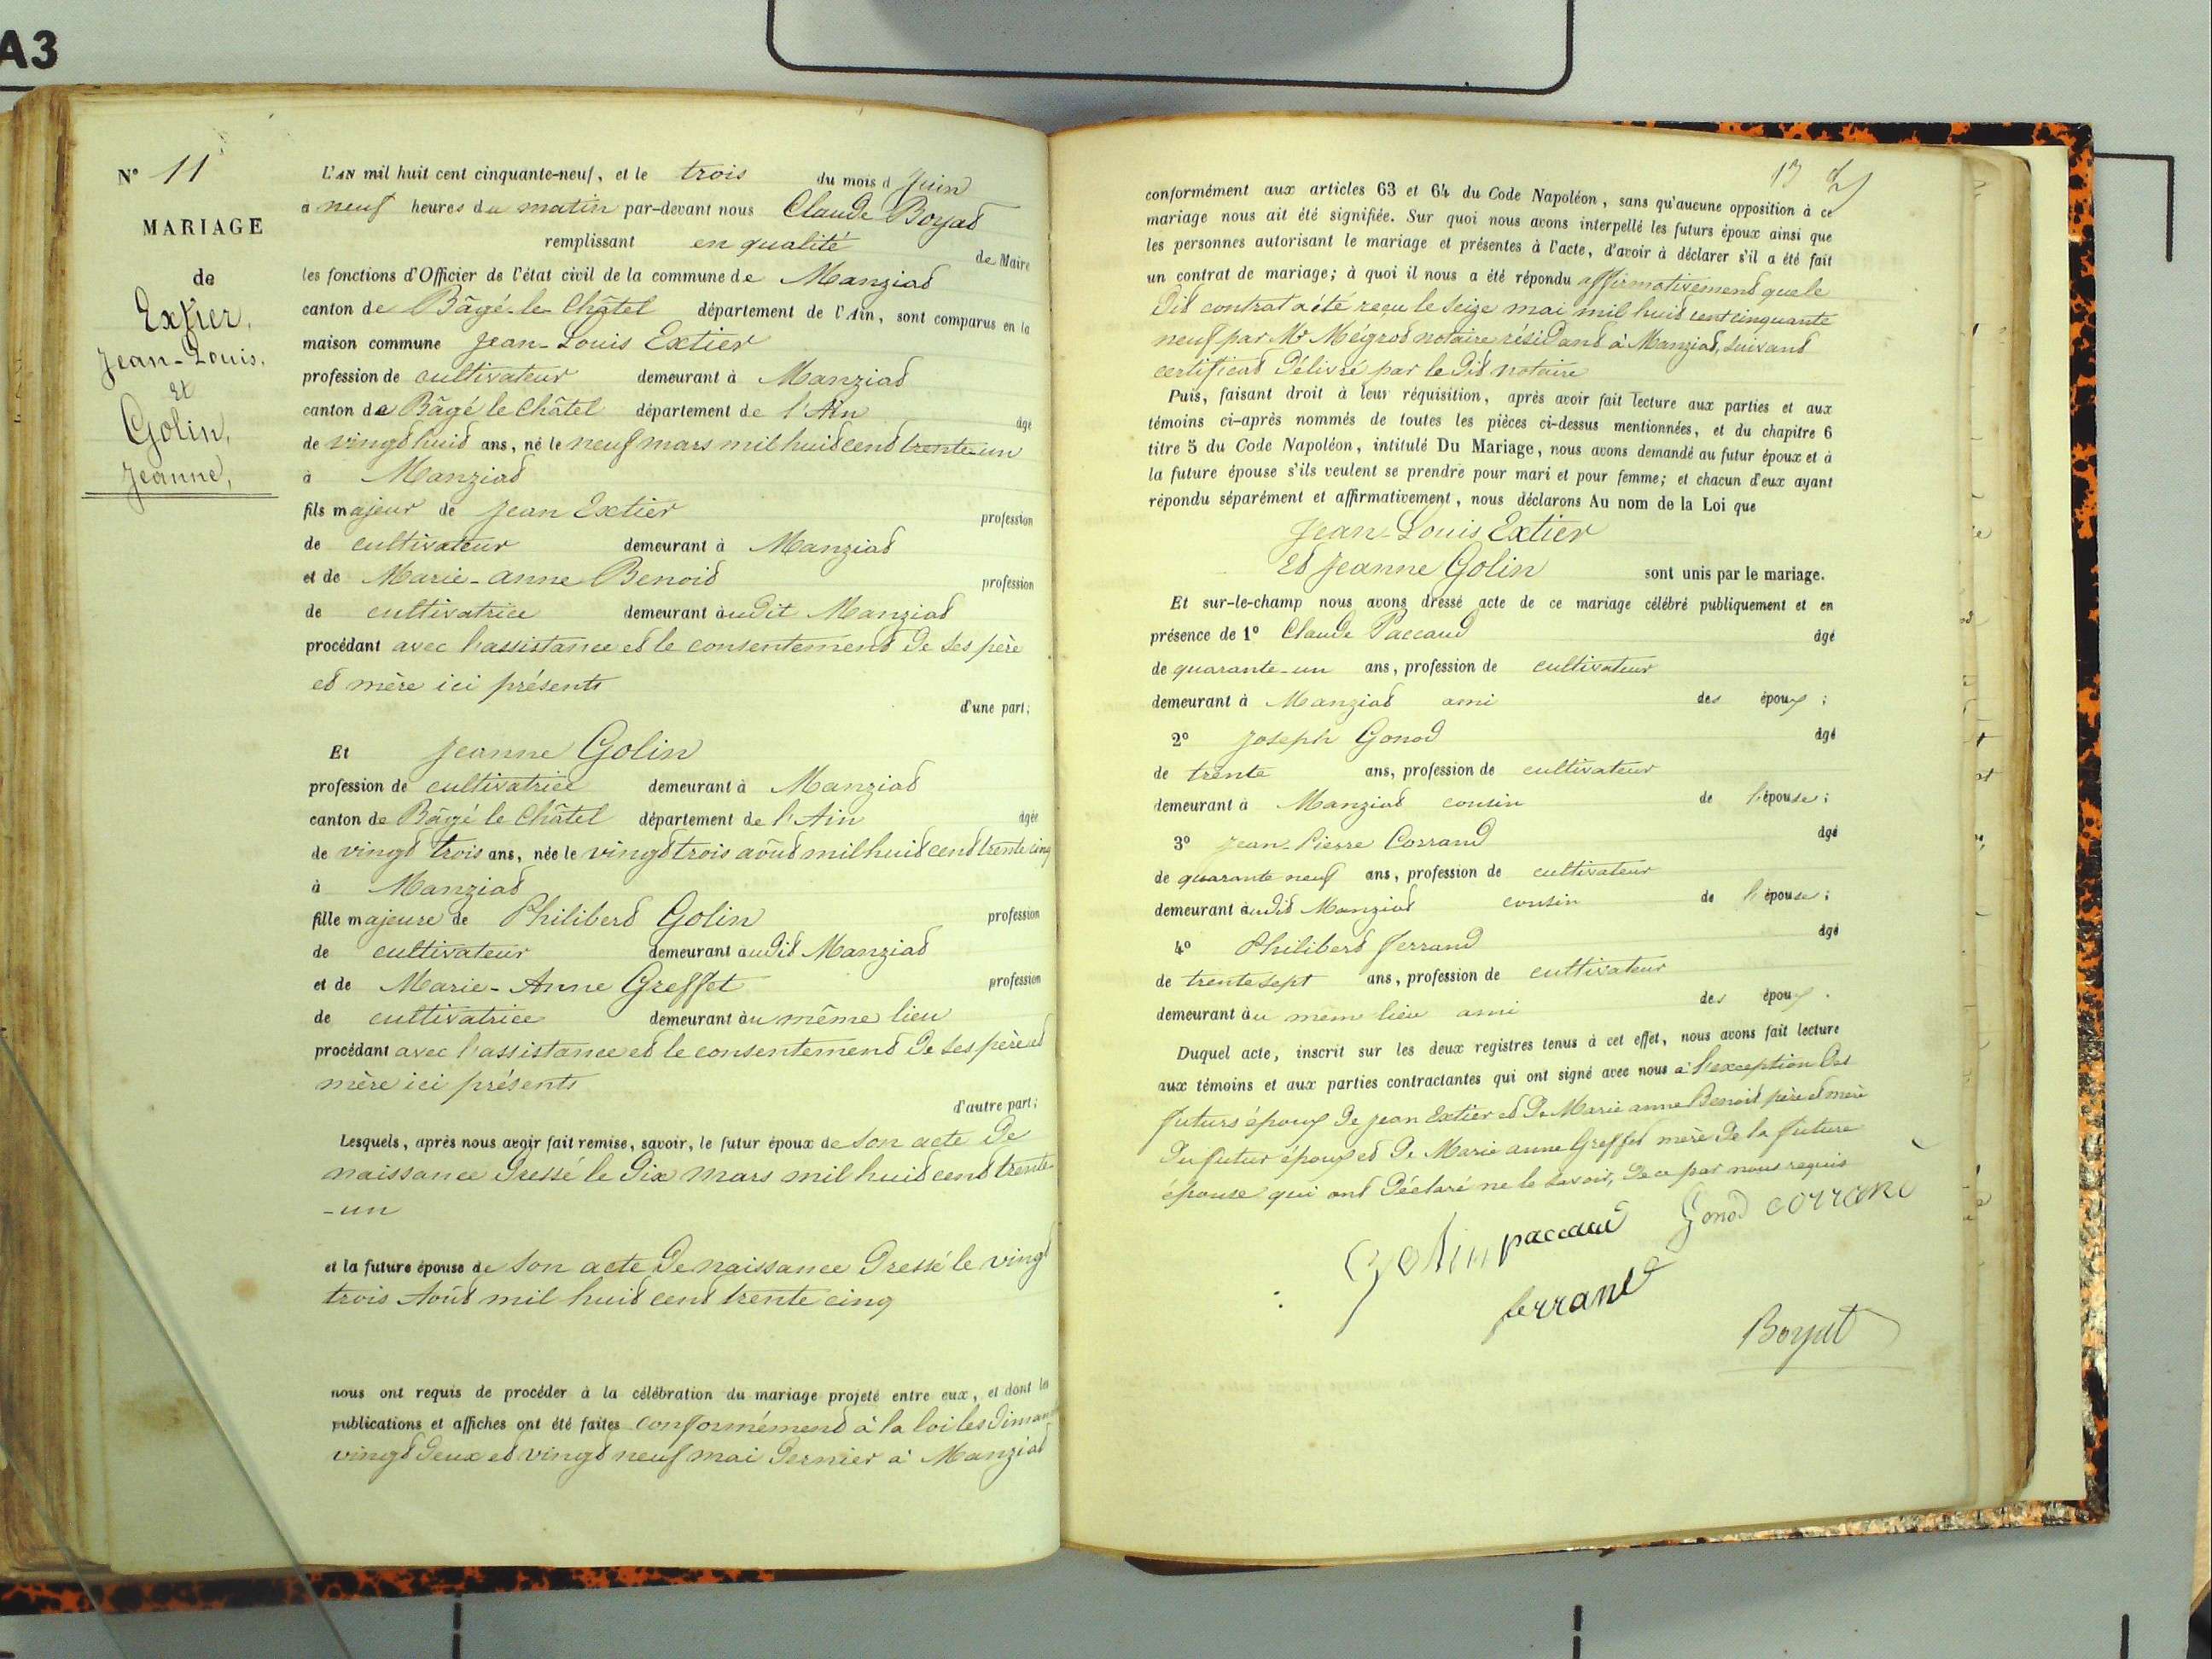 A3
N° 11
MARIAGE
de
Extier,
Jean-Louis,
Et
Golin,
Jeanne,
L'AN mil huit cent cinquante-neuf, et le trois du mois d Juin
a neuf heures du matin par-devant nous Claude Boyat
remplissant en qualité de Maire
les fonctions d'Officier de l'état civil de la commune de Manziat
canton de Bâgé-le-Châtel département de l'Ain, sont comparus en la
maison commune Jean-Louis Extier
profession de cultivateur demeurant à Manziat
canton de Bâgé le Châtel département de l'Ain âgé
de vingt huit ans, né le neuf mars mil huit cent trente-un
à Manziat
fils majeur de Jean Extier profession
de cultivateur demeurant à Manziat
et de Marie-anne Benoit profession
de cultivatrice demeurant audit Manziat
procédant avec l'assistance et le consentement de ses père
et mère ici présents
d'une part;
Et Jeanne Golin
profession de cultivatrice demeurant à Manziat
canton de Bâgé le Châtel département de l'Ain âgée
de vingt trois ans, née le vingt trois août mil huit cent trente cinq
à Manziat
fille majeure de Philibert Golin profession
de cultivateur demeurant audit Manziat
et de Marie-Anne Greffet profession
de cultivatrice demeurant au même lieu
procédant avec l'assistance et le consentement de ses père et
mère ici présents
d'autre part;
Lesquels, après nous avoir fait remise, savoir, le futur époux de son acte de
naissance dressé le dix mars mil huit cent trente
-un
et la future épouse de son acte de naissance dressé le vingt
trois Août mil huit cent trente cinq
nous ont requis de procéder à la célébration du mariage projeté entre eux, et dont les
publications et affiches ont été faites conformément à la loi les diman
vingt deux et vingt neuf mai dernier à Manziat
13
conformément aux articles 63 et 64 du Code Napoléon, sans qu'aucune opposition à ce
mariage nous ait été signifiée. Sur quoi nous avons interpellé les futurs époux ainsi que
les personnes autorisant le mariage et présentes à l'acte, d'avoir à déclarer s'il a été fait
un contrat de mariage; à quoi il nous a été répondu affirmativement que le
dit contrat a été reçu le seize mai mil huit cent cinquante
neuf par Mr Mégrod notaire résidant à Manziat, suivant
certificat délivré par le dit notaire
Puis, faisant droit à leur réquisition, après avoir fait lecture aux parties et aux
témoins ci-après nommés de toutes les pièces ci-dessus mentionnées, et du chapitre 6
titre 5 du Code Napoléon, intitulé Du Mariage, nous avons demandé au futur époux et à
la future épouse s'ils veulent se prendre pour mari et pour femme; et chacun d'eux ayant
répondu séparément et affirmativement, nous déclarons Au nom de la Loi que
Jean-Louis Extier
Et Jeanne Golin sont unis par le mariage.
Et sur-le-champ nous avons dressé acte de ce mariage célébré publiquement et en
présence de 1° Claude Paccaud âgé
de quarante-un ans, profession de cultivateur
demeurant à Manziat ami des époux;
2° Joseph Gonod âgé
de trente ans, profession de cultivateur
demeurant à Manziat cousin de l'épouse;
3° Jean-Pierre Corrand âgé
de quarante neuf ans, profession de cultivateur
demeurant audit Manziat cousin de l'épouse;
4° Philibert Ferrand âgé
de trente sept ans, profession de cultivateur
demeurant au mem lieu ami des époux.
Duquel acte, inscrit sur les deux registres tenus à cet effet, nous avons fait lecture
aux témoins et aux parties contractantes qui ont signé avec nous à l'exception des
futurs époux de Jean Extier et de Marie anne Benoit père et mère
du futur époux et de Marie anne Greffet mère de la future
épouse qui ont déclaré ne le savoir, de ce par nous requis
Golin paccaud Gonod corrand
ferrand
Boyat